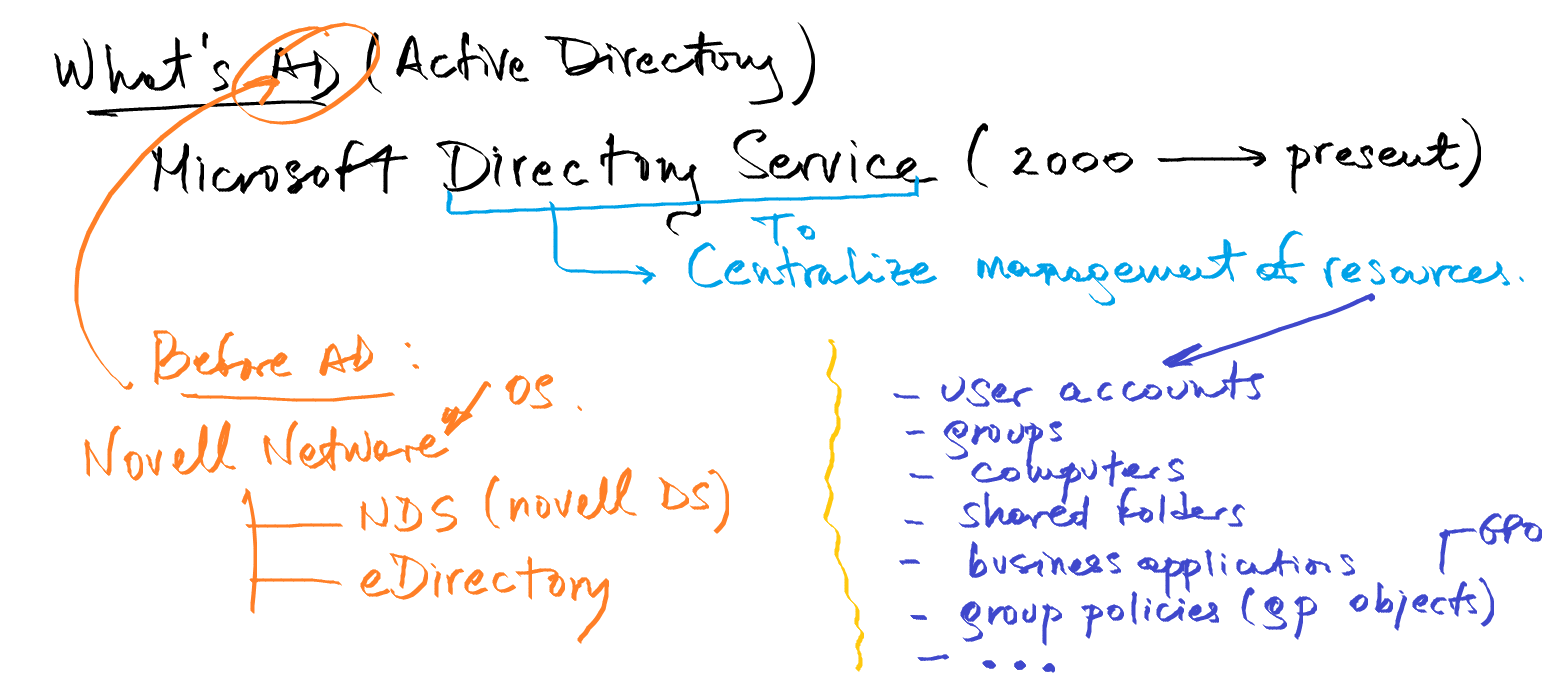 What's AD (Active Directory)
Microsoft Directory Service (2000 → present)
To
Centralize management of resources.
Before AD:
OS.
Novell Netware
NDS (novell DS)
eDirectory
- user accounts
- groups
- computers
- shared folders
- business applications
GPO
- group policies (gp objects)
- ...